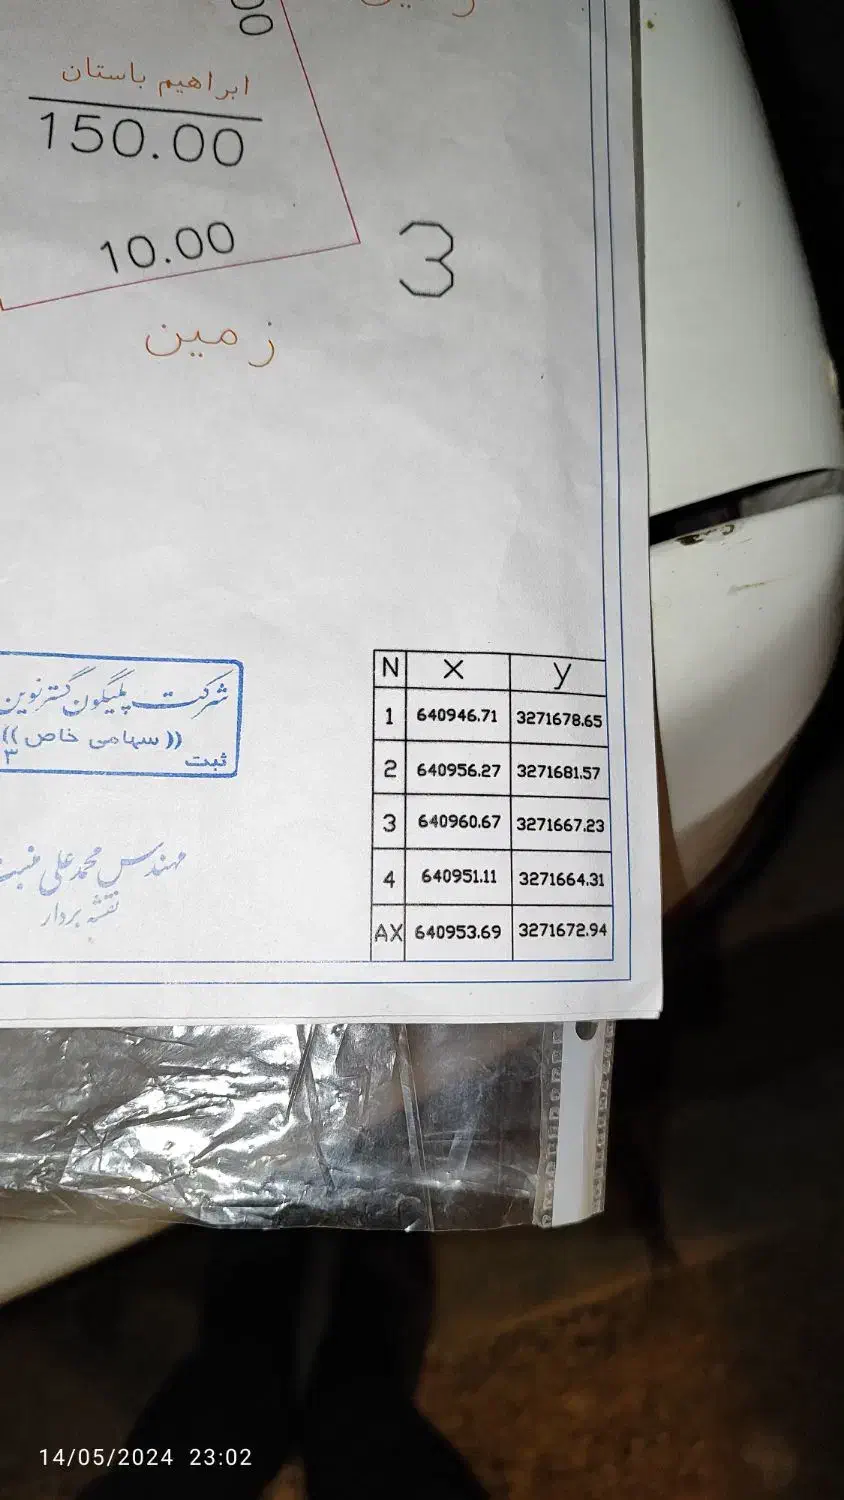 ابراهیم باستان
150.00
10.00
3
زمین
N X y
1 640946.71 3271678.65
2 640956.27 3271681.57
3 640960.67 3271667.23
4 640951.11 3271664.31
AX 640953.69 3271672.94
شرکت پلیگون گستر نوین
((سهامی خاص))
ثبت ۳
مهندس محمد علی
نقشه بردار
14/05/2024 23:02